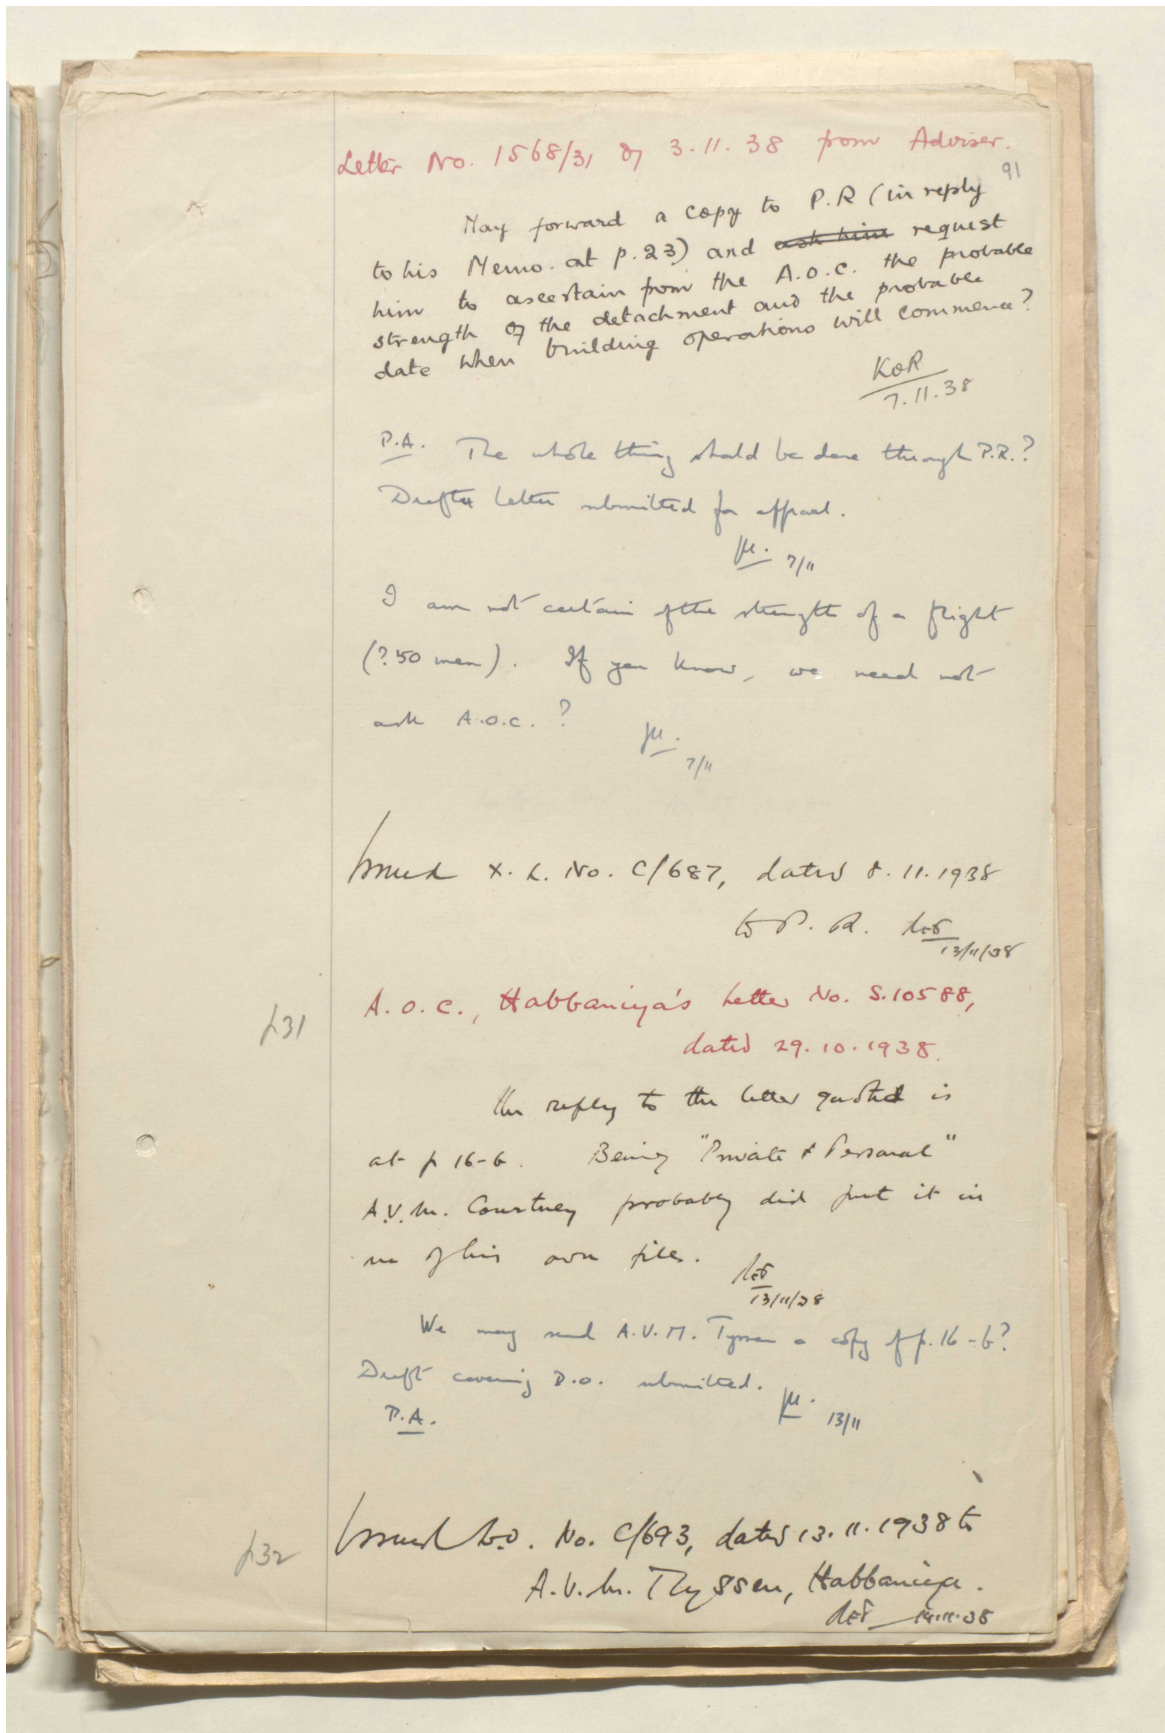 Letter No. 1568/31 of 3.11.38 from Adviser.
91
May forward a copy to P.R (in reply
to his Memo. at p.23) and ask him request
him to ascertain from the A.O.C. the probable
strength of the detachment and the probable
date when building operations will commence?
7.11.38
P.A. The whole thing should be done through P.R.?
Draft letter submitted for approval.
7/11
I am not certain of the strength of a flight
(? 50 men). If you know, we need not
ask A.O.C.?
7/11
Issued X.L. No. C/687, dated 8.11.1938
to P. R.
13/11/38
p31
A.O.C., Habbaniya's Letter No. S.10588,
dated 29.10.1938.
The reply to the letter quoted is
at p 16-b. Being "Private & Personal"
A.V.M. Courtney probably did put it in
one of his own files.
13/11/38
We may send A.V.M. Tyssen a copy of p.16-b?
Draft covering D.O. submitted.
P.A.
13/11
p32
Issued D.O. No. C/693, dated 13.11.1938 to
A.V.M. Thyssen, Habbaniya.
14.11.38